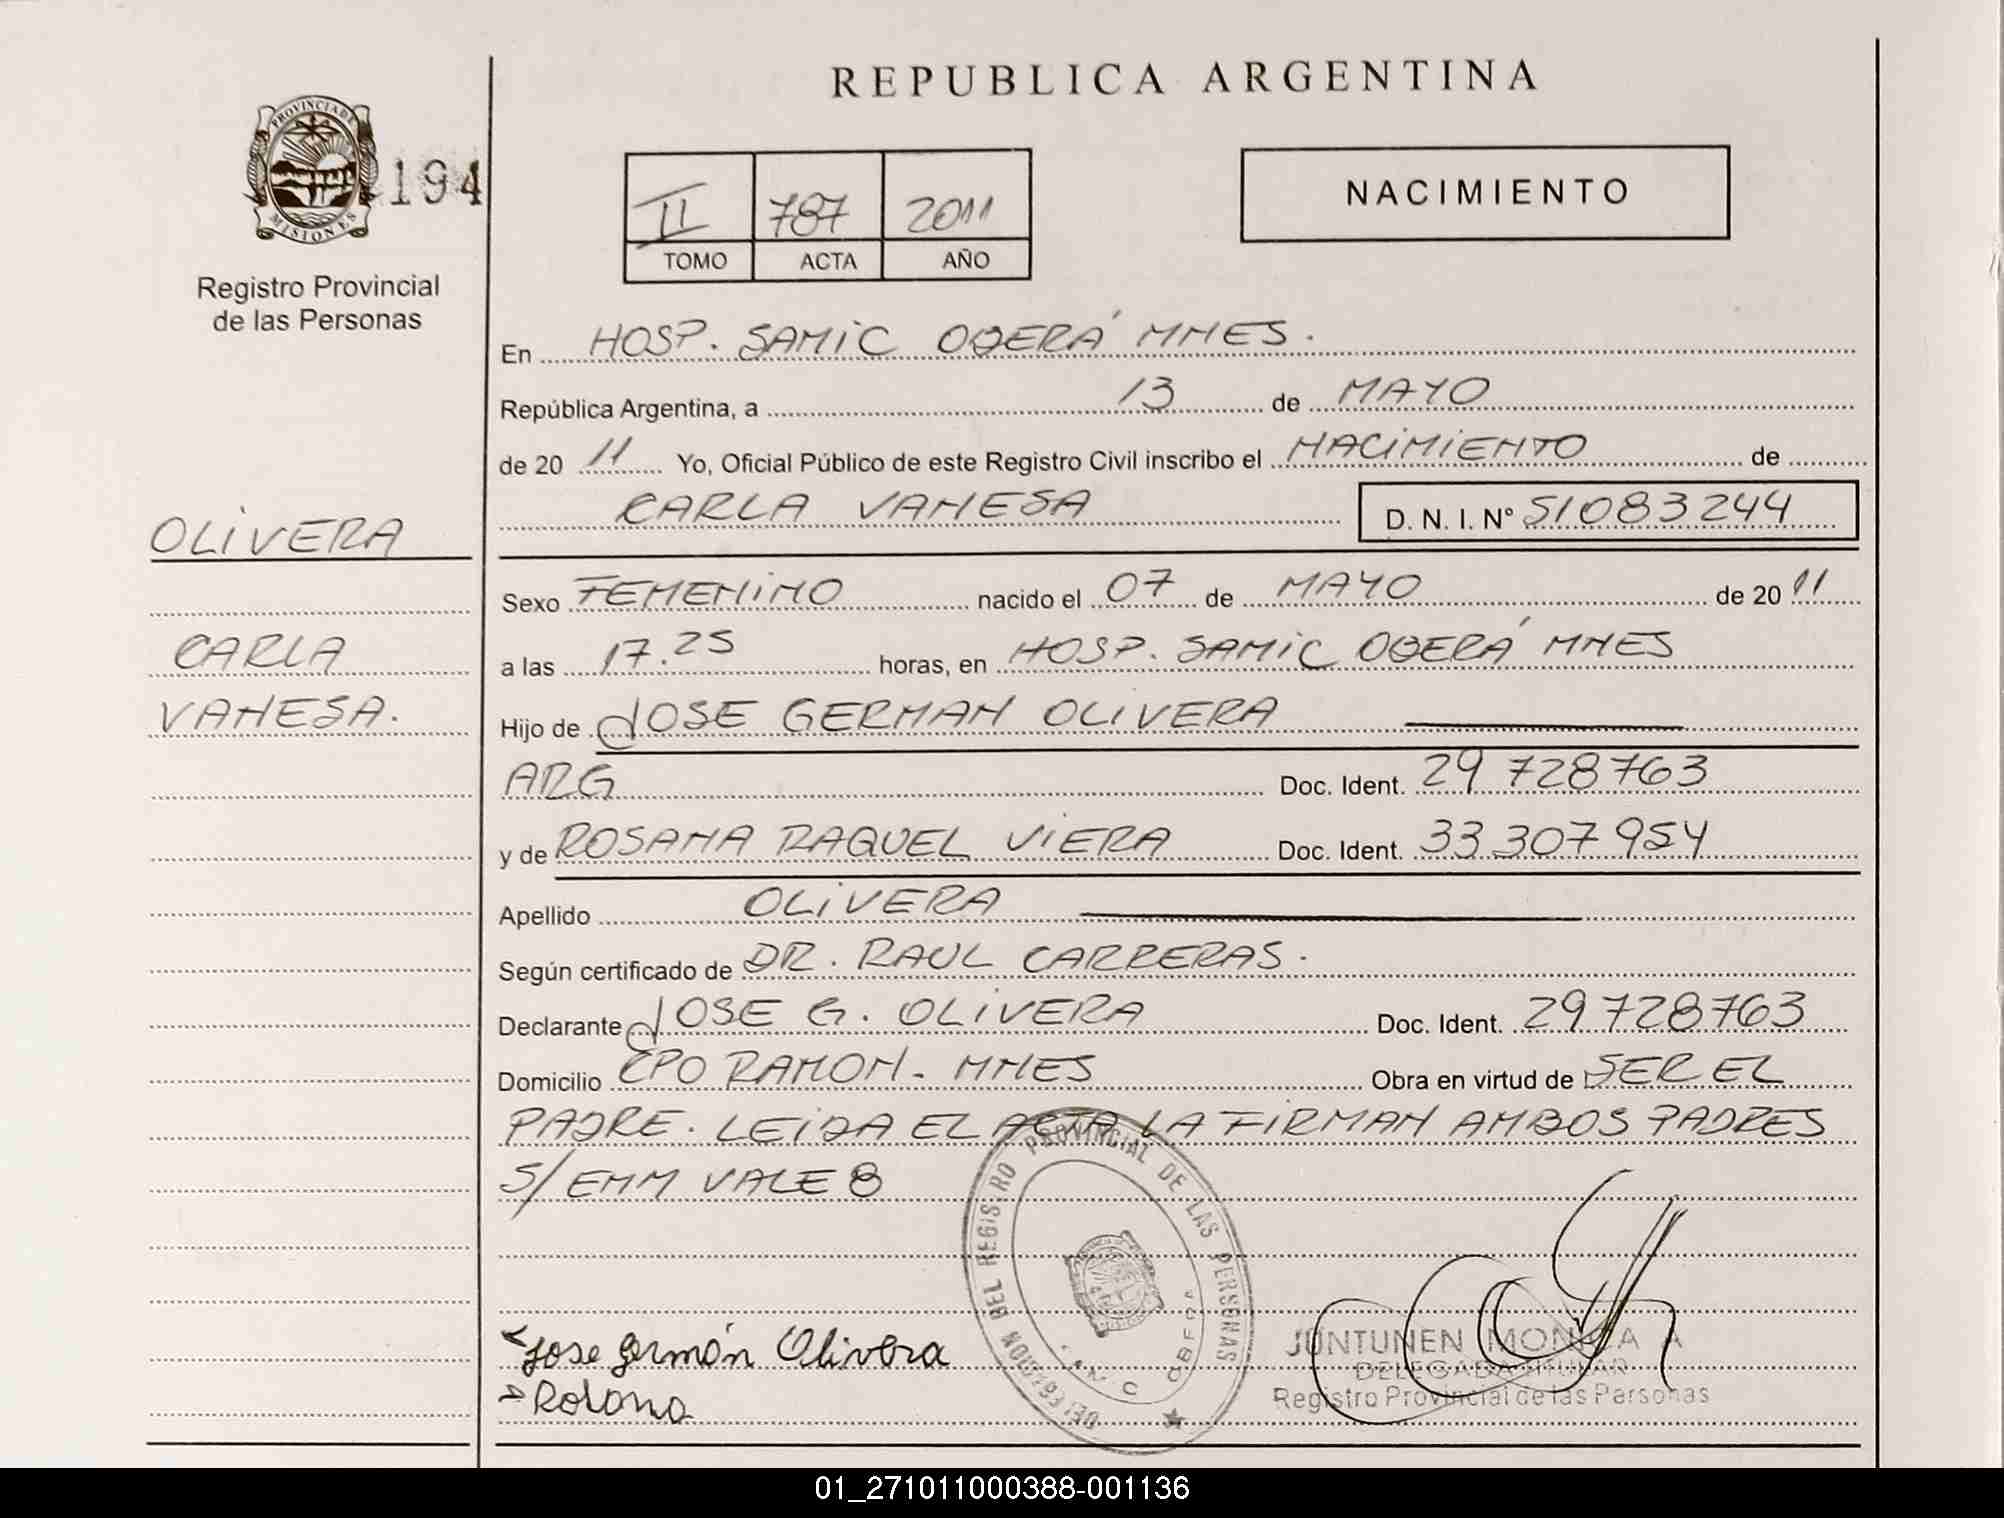 REPUBLICA ARGENTINA
PROVINCIA DE
MISIONES
194
Registro Provincial
de las Personas
II 787 2011
TOMO ACTA AÑO
NACIMIENTO
En HOSP. SAMIC OBERÁ MNES.
República Argentina, a 13 de MAYO
de 20 11 Yo, Oficial Público de este Registro Civil inscribo el NACIMIENTO de
CARLA VANESA D. N. I. Nº 51083244
OLIVERA
CARLA
VANESA.
Sexo FEMENINO nacido el 07 de MAYO de 20 11
a las 17.25 horas, en HOSP. SAMIC OBERÁ MNES
Hijo de JOSE GERMAN OLIVERA
ARG Doc. Ident. 29 728763
y de ROSANA RAQUEL VIERA Doc. Ident. 33 307 954
Apellido OLIVERA
Según certificado de DR. RAUL CARRERAS.
Declarante JOSE G. OLIVERA Doc. Ident. 29 728763
Domicilio CPO RAMON. MNES Obra en virtud de SER EL
PADRE. LEIDA EL ACTA LA FIRMAN AMBOS PADRES
S/ EMM VALE 8
DELEGACION DEL REGISTRO PROVINCIAL DE LAS PERSONAS
OBERA
Jose Germán Olivera
Rosana
JUNTUNEN MONICA A
DELEGADA TITULAR
Registro Provincial de las Personas
01_271011000388-001136